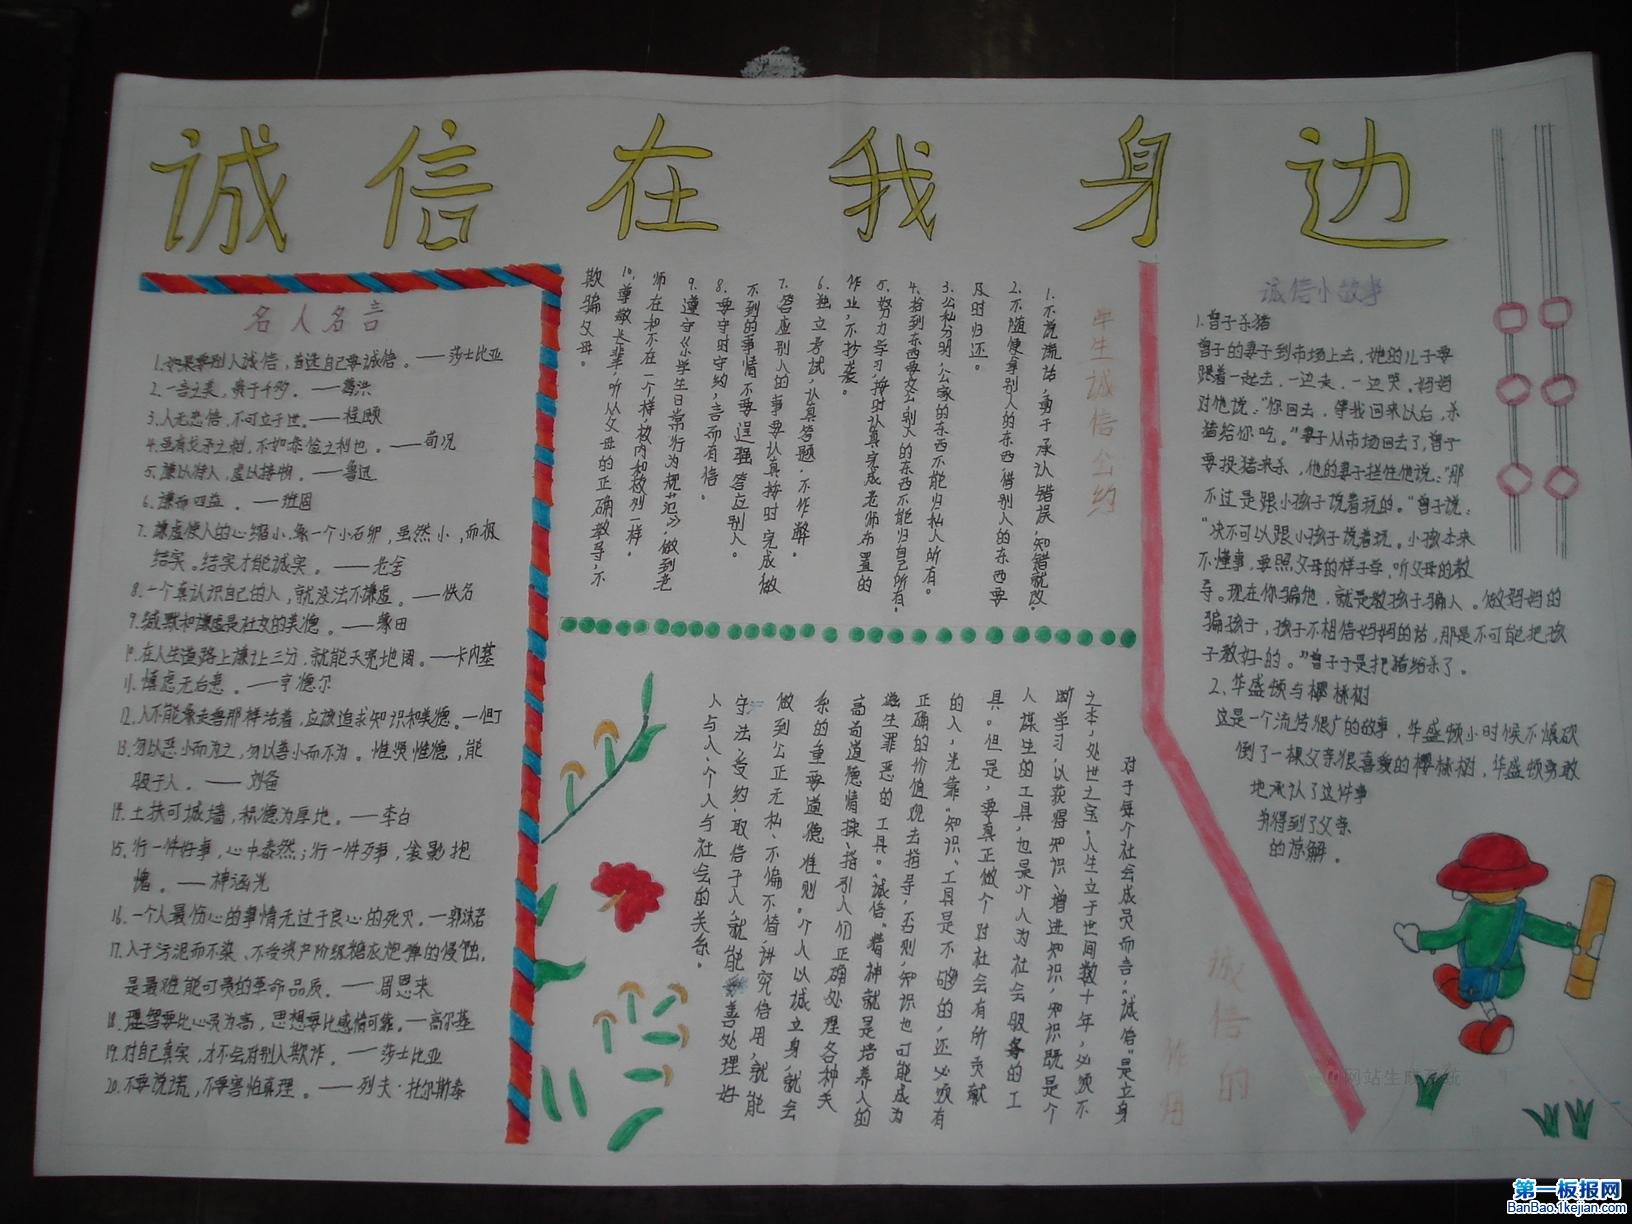 诚信在我身边
名人名言
1.如果要别人诚信，首选自己要诚信。——莎士比亚
2.一言之美，贵于千金。——葛洪
3.人无忠信，不可立于世。——程颐
4.虽有戈矛之刺，不如恭俭之利也。——荀况
5.谦以待人，虚以接物。——鲁迅
6.谦而四益。——班固
7.谦虚使人的心缩小，象一个小石卵，虽然小，而极
结实。结实才能诚实。——老舍
8.一个真认识自己的人，就没法不谦虚。——佚名
9.缄默和谦虚是社交的美德。——蒙田
10.在人生道路上谦让三分，就能天宽地阔。——卡内基
11.慎虑无后患。——亨德尔
12.人不能象走兽那样活着，应该追求知识和美德。——但丁
13.勿以恶小而为之，勿以善小而不为。惟贤惟德，能
服于人。——刘备
14.土扶可城墙，积德为厚地。——李白
15.行一件好事，心中泰然；行一件歹事，衾影抱
愧。——神涵光
16.一个人最伤心的事情无过于良心的死灭。——郭沫若
17.入于污泥而不染、不受资产阶级糖衣炮弹的侵蚀，
是最难能可贵的革命品质。——周恩来
18.理智要比心灵为高，思想要比感情可靠。——高尔基
19.对自己真实，才不会对别人欺诈。——莎士比亚
20.不要说谎，不要害怕真理。——列夫·托尔斯泰
学生诚信公约
1.不说谎话，勇于承认错误，知错就改。
2.不随便拿别人的东西，借别人的东西要
及时归还。
3.公私分明，公家的东西不能归私人所有。
4.拾到东西要交公别人的东西不能归自己所有。
5.努力学习，按时认真完成老师布置的
作业，不抄袭。
6.独立考试，认真答题，不作弊。
7.答应别人的事要认真按时完成做
不到的事情不要逞强答应别人。
8.要守时守约，言而有信。
9.遵守《小学生日常行为规范》，做到老
师在和不在一个样校内和校外一样。
10.尊敬长辈，听从父母的正确教导，不
欺骗父母。
诚信的
作用
对于每个社会成员而言，“诚信”是立身
之本，处世之宝。人生立于世间数十年，必须不
断学习，以获得知识、增进知识，知识既是个
人谋生的工具，也是个人为社会服务的工
具。但是，要真正做个对社会有所贡献
的人，光靠“知识、工具是不够的，还必须有
正确的价值观去指导，否则，知识也可能成为
滋生罪恶的工具。“诚信”精神就是培养人的
高尚道德情操、指引人们正确处理各种关
系的重要道德准则。个人以诚立身，就会
做到公正无私、不偏不倚，讲究信用，就能
守法、受约、取信于人，就能善处理好
人与人、个人与社会的关系。
诚信小故事
1.曾子杀猪
曾子的妻子到市场上去，她的儿子要
跟着一起去，一边走，一边哭。妈妈
对他说：“你回去，等我回来以后，杀
猪给你吃。”妻子从市场回去了，曾子
要捉猪来杀，他的妻子拦住他说：“那
不过是跟小孩子说着玩的。”曾子说：
“决不可以跟小孩子说着玩。小孩本来
不懂事，要照父母的样子学，听父母的教
导。现在你骗他，就是教孩子骗人。做妈妈的
骗孩子，孩子不相信妈妈的话，那是不可能把孩
子教好的。”曾子于是把猪给杀了。
2.华盛顿与樱林树
这是一个流传很广的故事，华盛顿小时候不慎砍
倒了一棵父亲很喜爱的樱林树，华盛顿勇敢
地承认了这件事
并得到了父亲
的谅解。
@网站生成系统
第一板报网
BanBao.1kejian.com